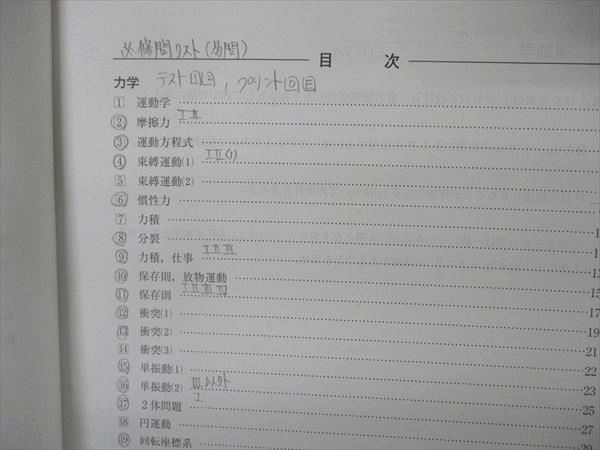 ※ 復習リスト(易問)
目 次
力学 テスト回図, プリント回目
1 運動学
2 摩擦力 I II
3 運動方程式
4 束縛運動(1) I II(1)
5 束縛運動(2)
6 慣性力
7 力積
8 分裂
9 力積,仕事 I II III
10 保存則,放物運動 13
11 保存則 I II III IV 15
12 衝突(1) 17
13 衝突(2) 19
14 衝突(3) 21
15 単振動(1) 22
16 単振動(2) III以外 23
17 2体問題 I 25
18 円運動 27
19 回転座標系 29